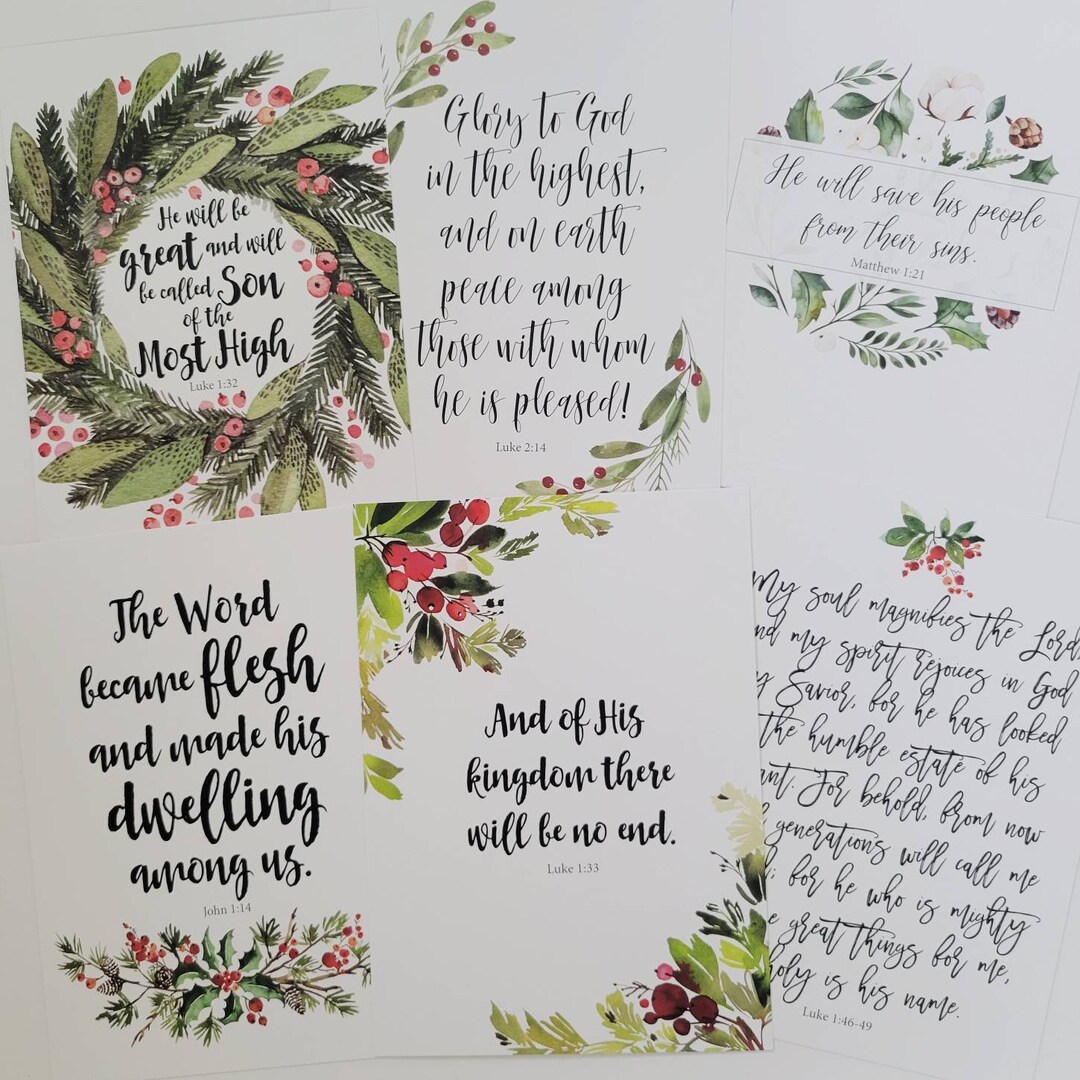 He will be
great and will
be called Son
of the
Most High
Luke 1:32
Glory to God
in the highest,
and on earth
peace among
those with whom
he is pleased!
Luke 2:14
He will save his people
from their sins.
Matthew 1:21
The Word
became flesh
and made his
dwelling
among us.
John 1:14
And of His
kingdom there
will be no end.
Luke 1:33
My soul magnifies the Lord,
my spirit rejoices in God
Savior, for he has looked
the humble estate of his
For behold, from now
generations will call me
for he who is mighty
great things for me,
holy is his name.
Luke 1:46-49